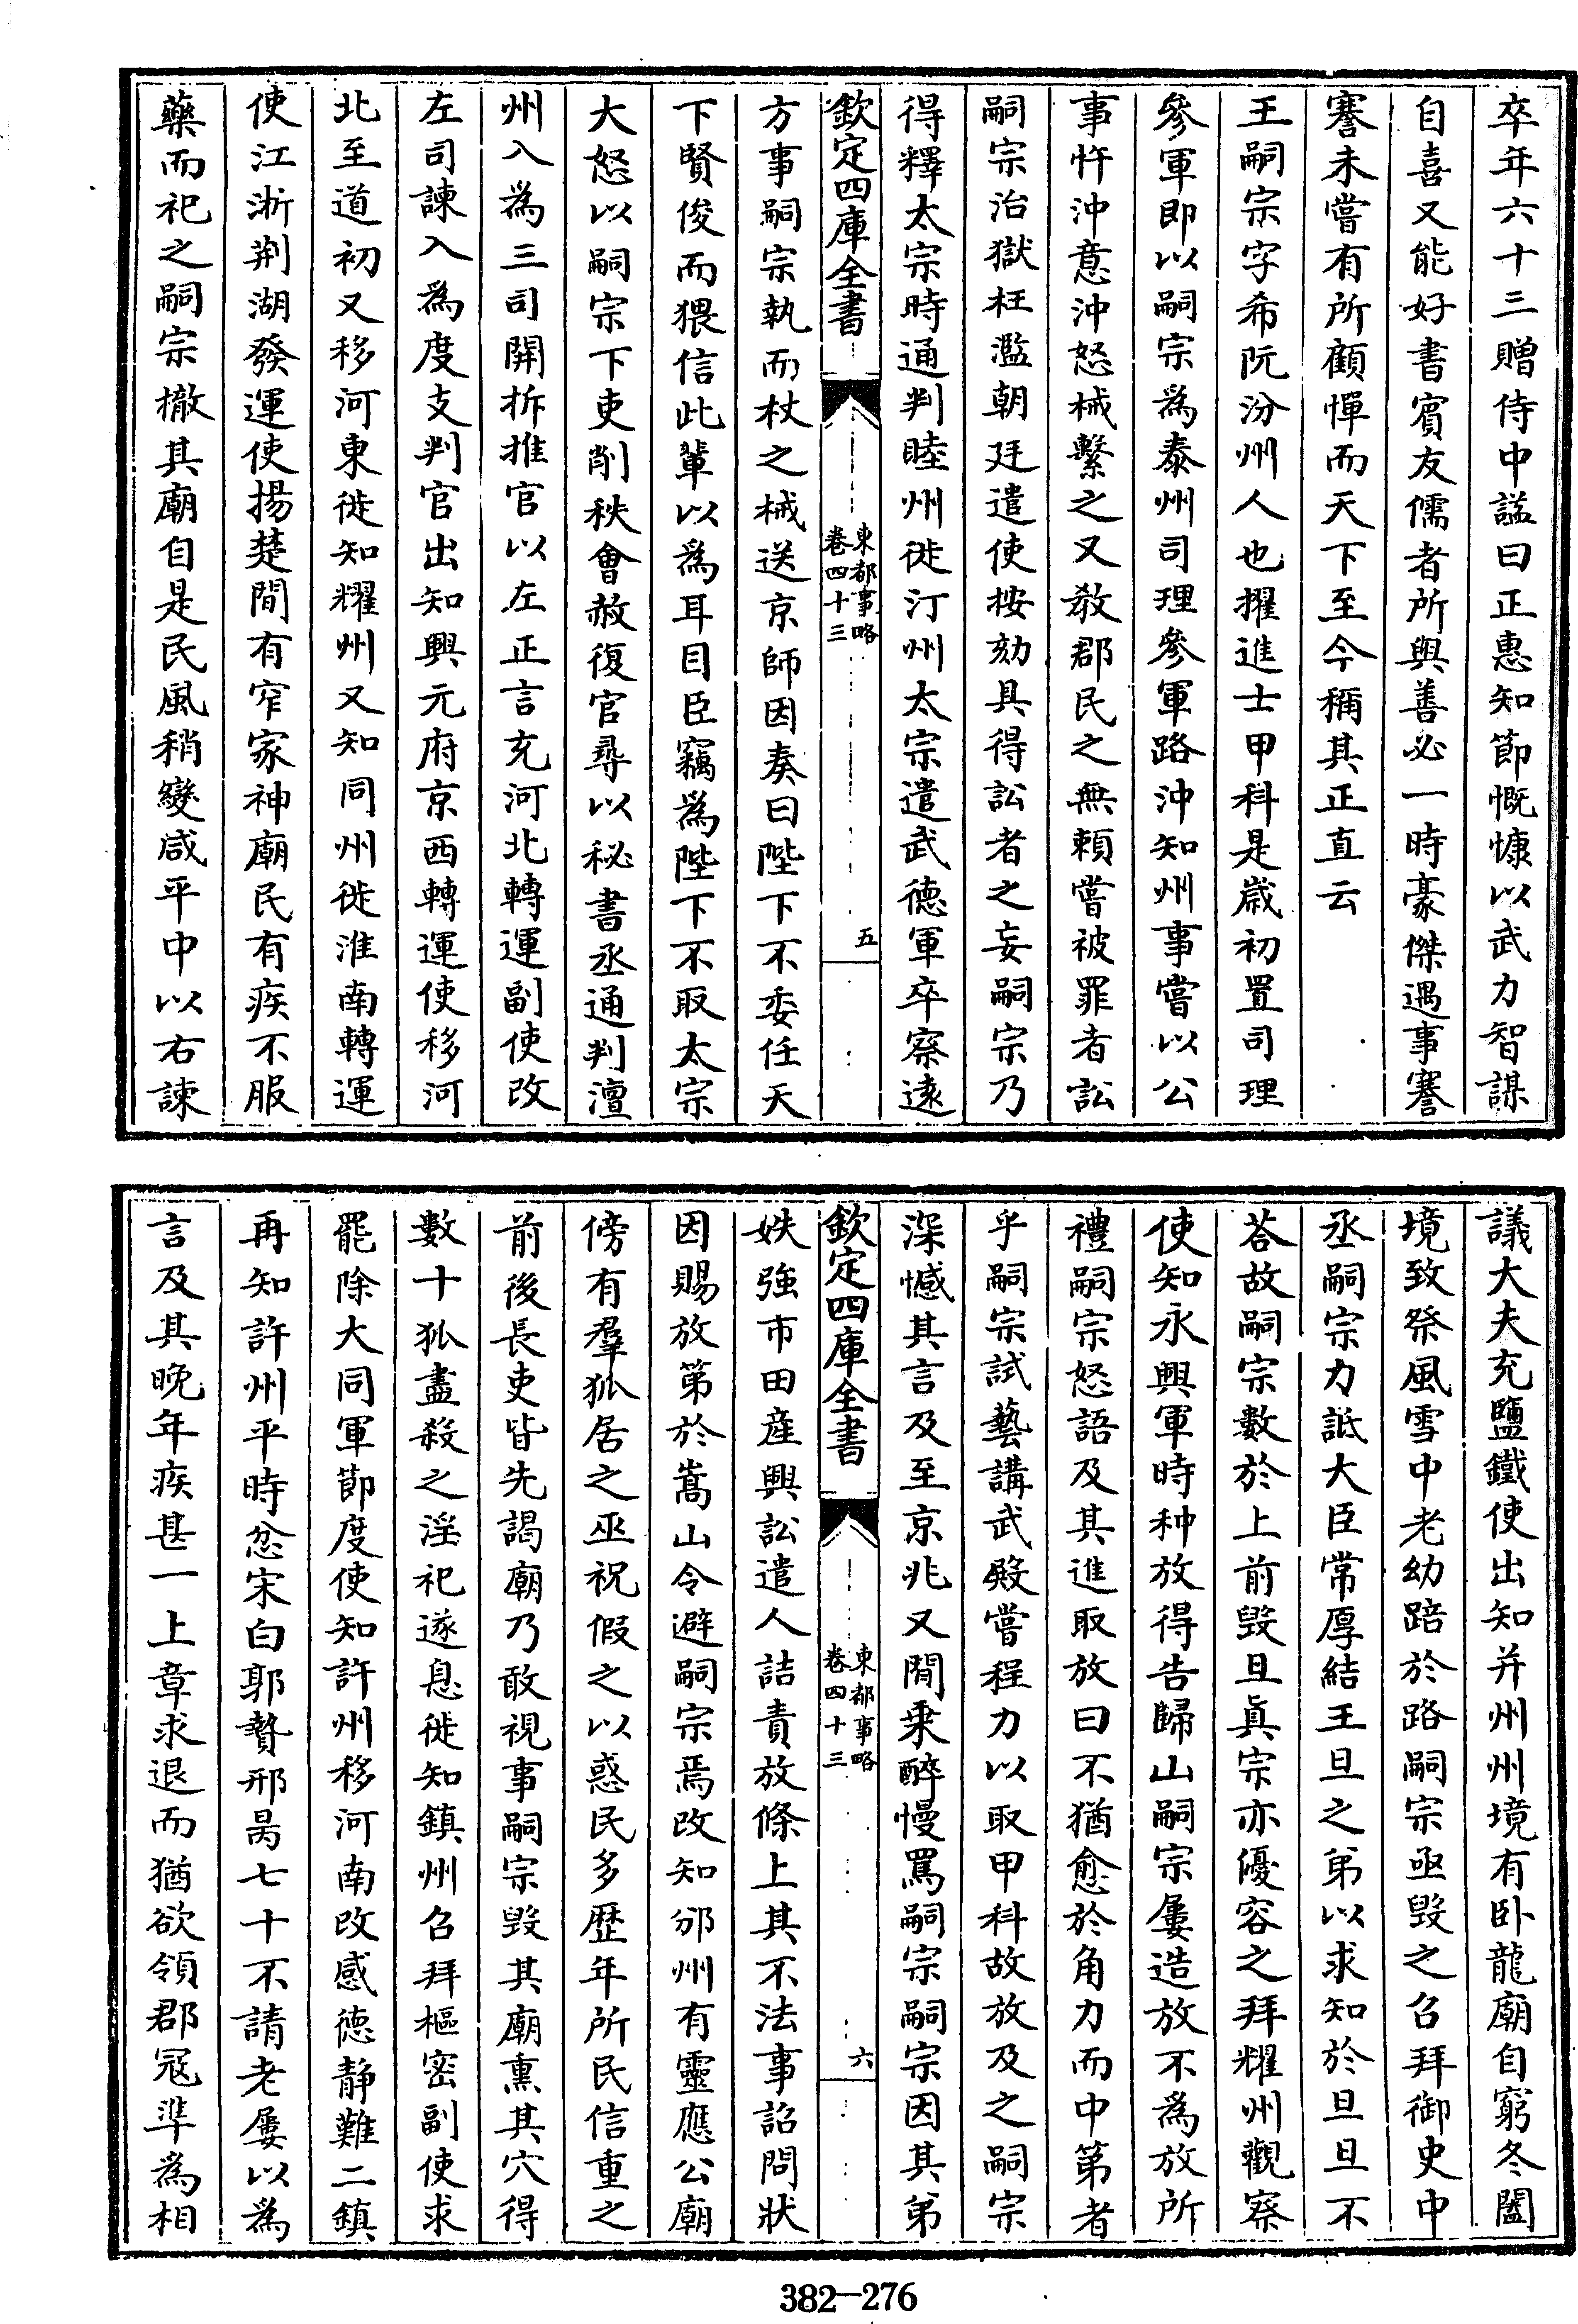 卒年六十三贈侍中諡曰正惠知節慨慷以武力智謀
自喜又能好書賓友儒者所與善必一時豪傑遇事謇
謇未嘗有所顧憚而天下至今稱其正直云
王嗣宗字希阮汾州人也擢進士甲科是嵗初置司理
參軍即以嗣宗為泰州司理參軍路沖知州事嘗以公
事忤沖意沖怒械繫之又教郡民之無賴嘗被罪者訟
嗣宗治獄枉濫朝廷遣使按劾具得訟者之妄嗣宗乃
得釋太宗時通判睦州徙汀州太宗遣武德軍卒察逺
欽定四庫全書
東都事略
卷四十三
五
方事嗣宗執而杖之械送京師因奏曰陛下不委任天
下賢俊而猥信此輩以為耳目臣竊為陛下不取太宗
大怒以嗣宗下吏削秩會赦復官尋以秘書丞通判澶
州入為三司開拆推官以左正言充河北轉運副使改
左司諫入為度支判官出知興元府京西轉運使移河
北至道初又移河東徙知耀州又知同州徙淮南轉運
使江浙荆湖發運使揚楚間有窄家神廟民有疾不服
藥而祀之嗣宗撤其廟自是民風稍變咸平中以右諫
議大夫充鹽鐵使出知并州州境有卧龍廟自窮冬闔
境致祭風雪中老幼踣於路嗣宗亟毀之召拜御史中
丞嗣宗力詆大臣常厚結王旦之弟以求知於旦旦不
荅故嗣宗數於上前毀旦真宗亦優容之拜耀州觀察
使知永興軍時种放得告歸山嗣宗屢造放不為放所
禮嗣宗怒語及其進取放曰不猶愈於角力而中第者
乎嗣宗試藝講武殿嘗程力以取甲科故放及之嗣宗
深憾其言及至京兆又閒乗醉慢罵嗣宗嗣宗因其弟
欽定四庫全書
東都事略
卷四十三
六
姪強市田産興訟遣人詰責放條上其不法事詔問狀
因賜放第於嵩山令避嗣宗焉改知邠州有靈應公廟
傍有羣狐居之巫祝假之以惑民多歷年所民信重之
前後長吏皆先謁廟乃敢視事嗣宗毀其廟熏其穴得
數十狐盡殺之淫祀遂息徙知鎮州召拜樞密副使求
罷除大同軍節度使知許州移河南改感德静難二鎮
再知許州平時忿宋白郭贄邢昺七十不請老屢以為
言及其晚年疾甚一上章求退而猶欲領郡冦準為相
382—276